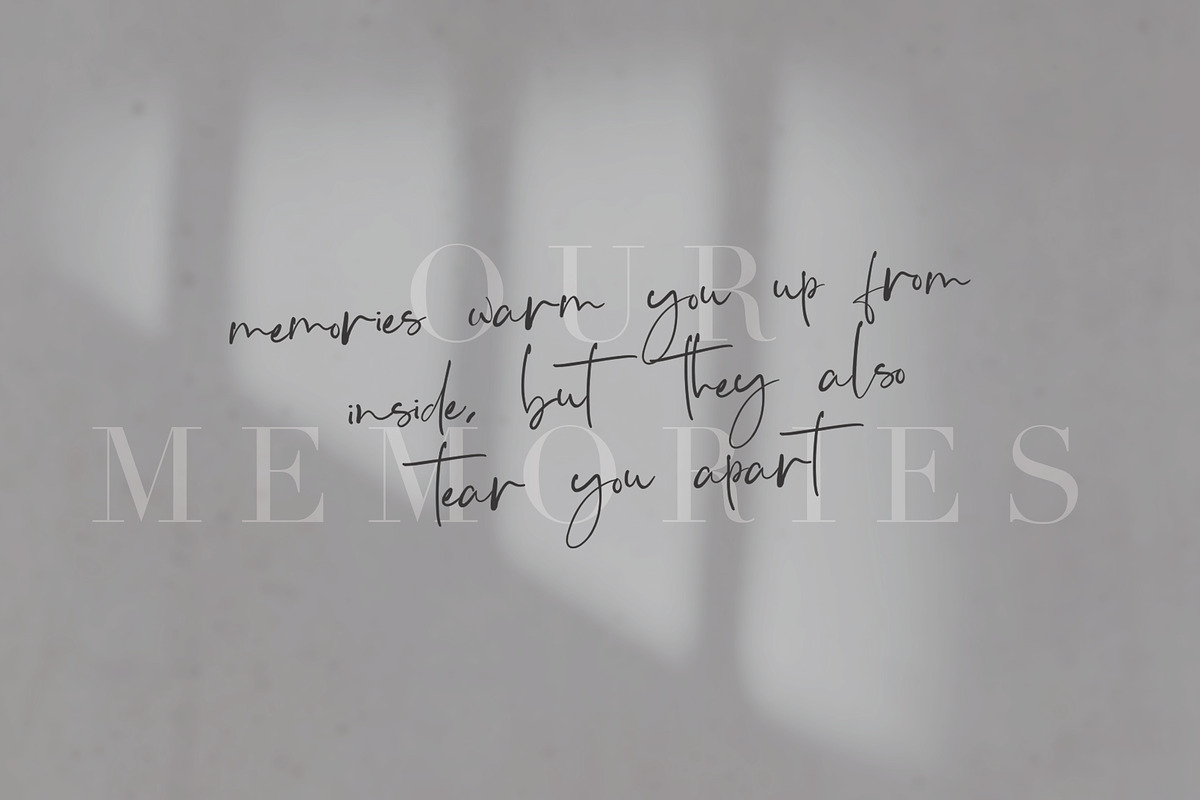 OUR
MEMORIES
memories warm you up from
inside, but they also
tear you apart